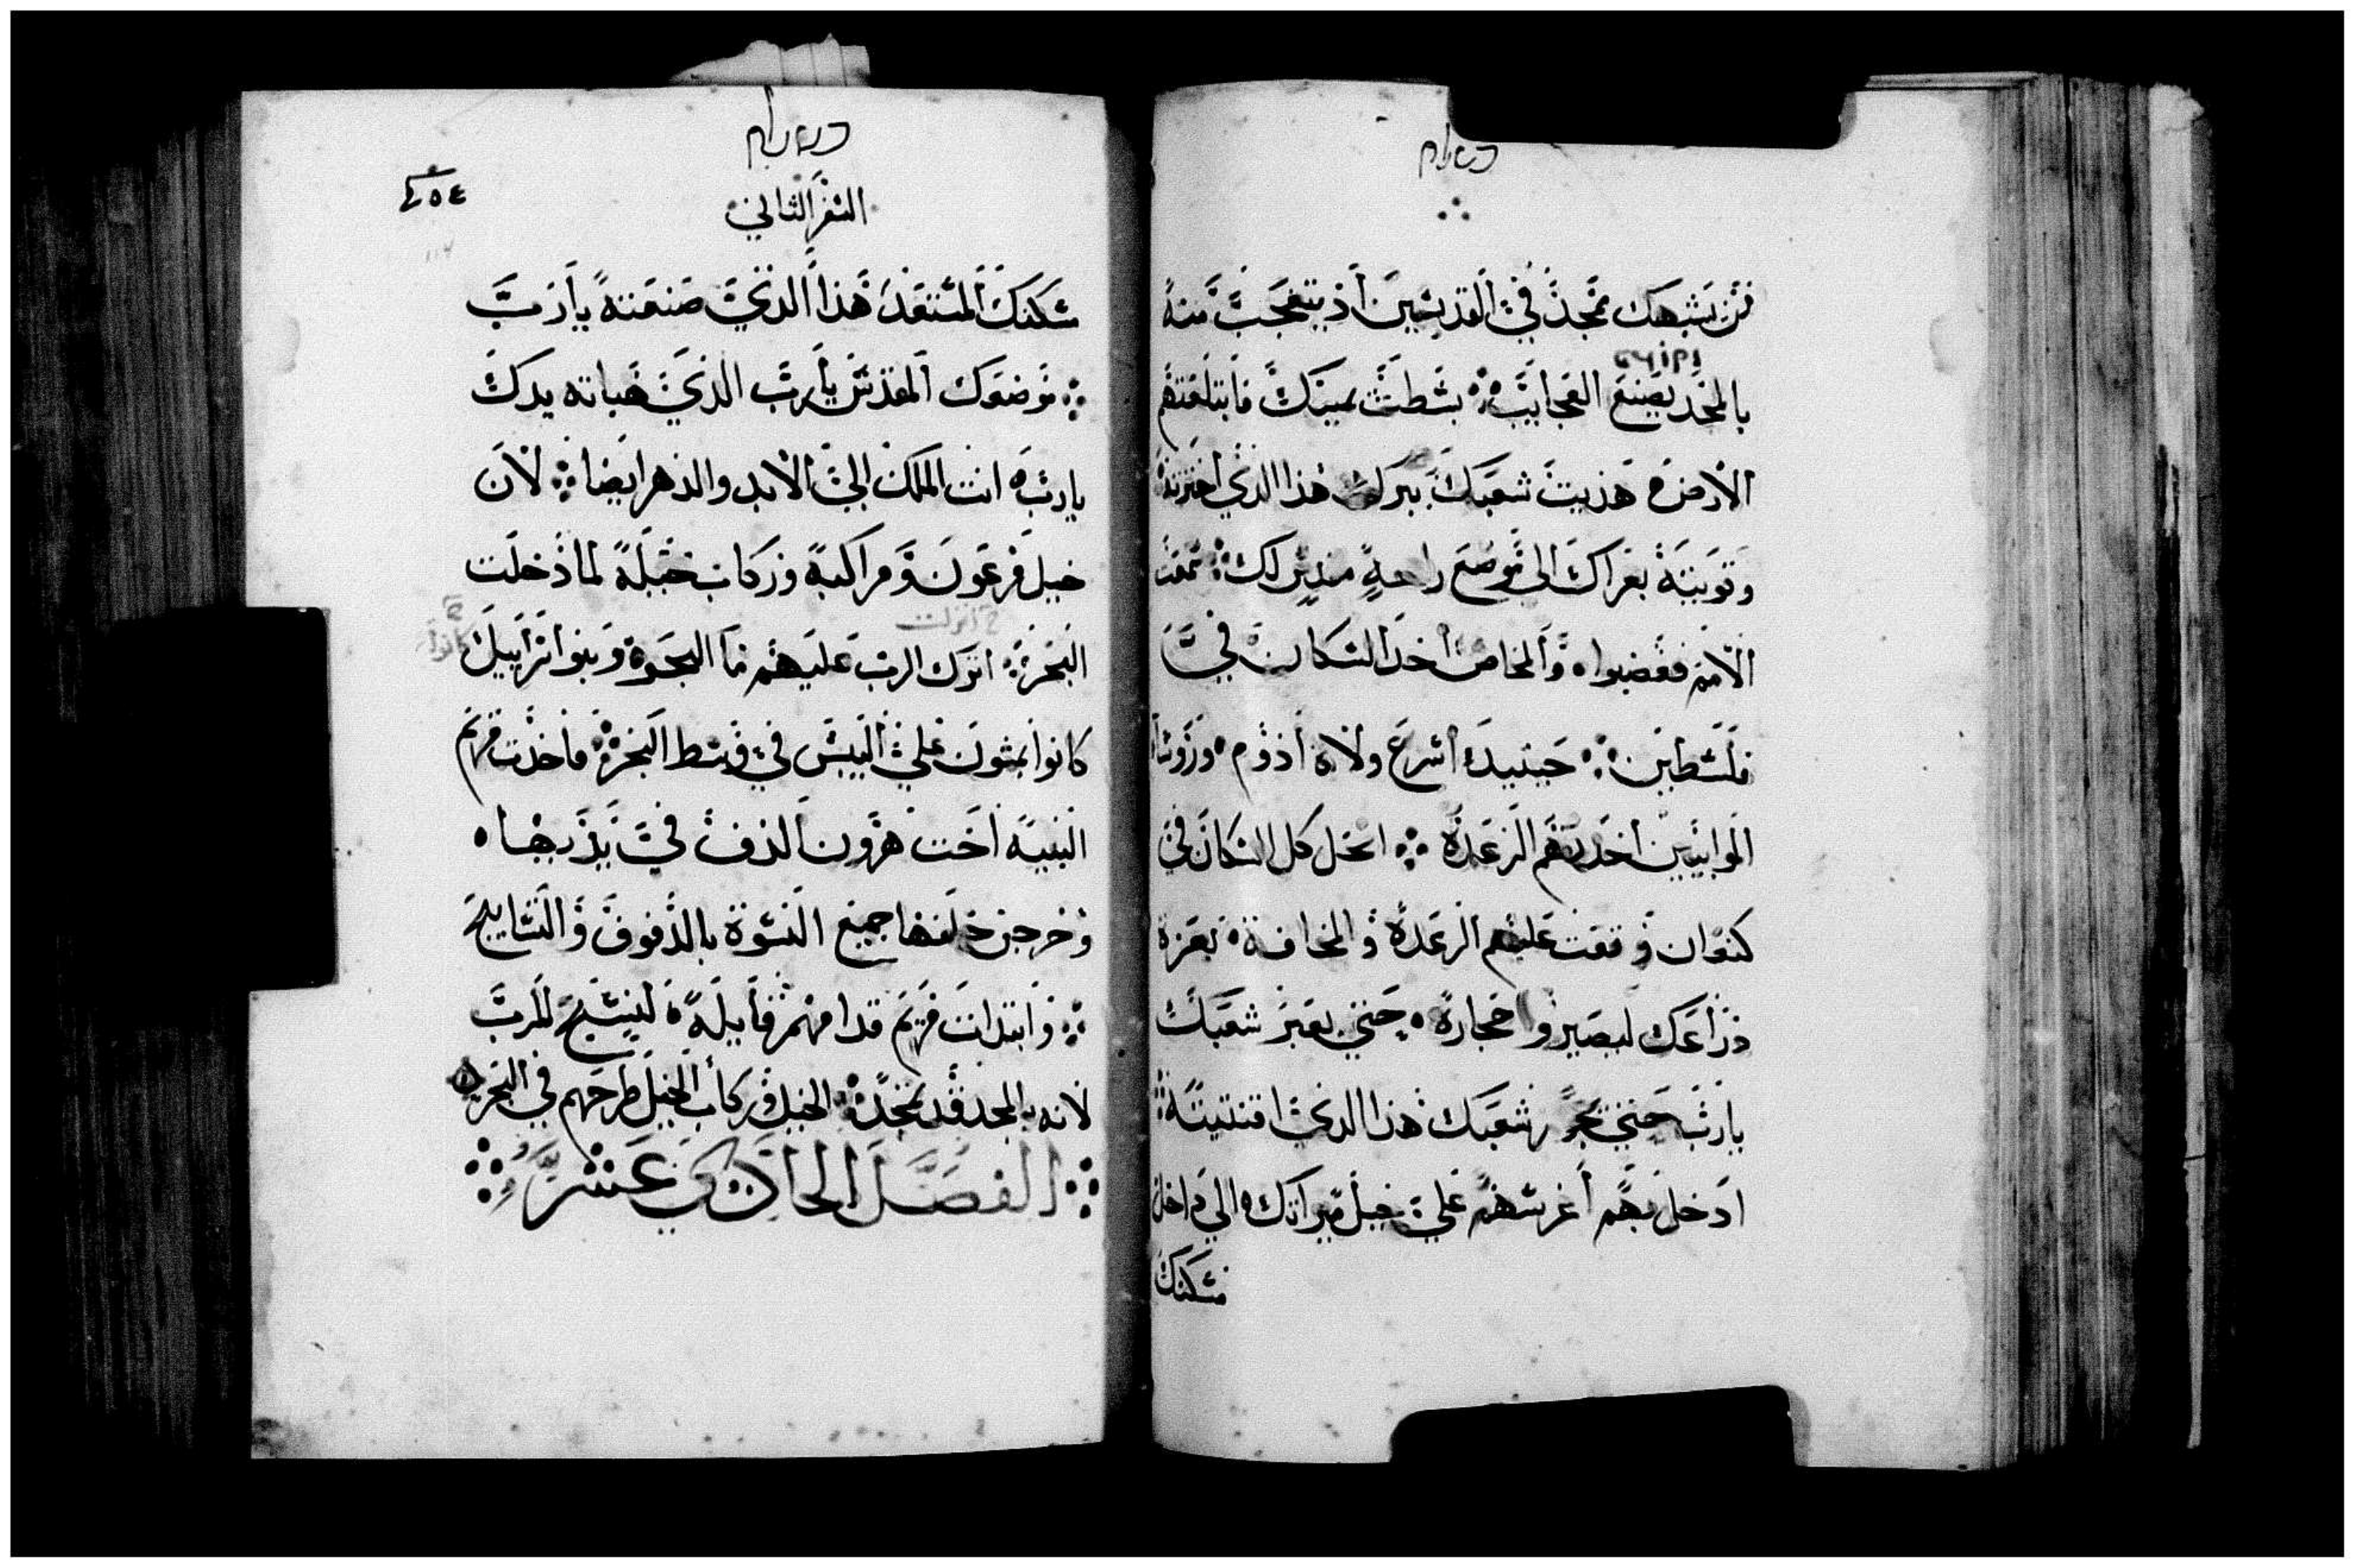 من يشبهك تمجد في القديسين اذ يتعجب منه
بالمجد يصنع العجايب ܀ بسطت يمينك فابتلعتهم
الارض ه هديت شعبك ببرك هذا الذي اخترته
وقويته بعزاك الى موضع راحة منديل لك ܀ سمعت
الامم فغضبوا ه والمخاض اخد السكان في
فلسطين ܀ حينيد اسرع ولاة ادوم ه وروسا
الموابيين اخدتهم الرعدة ܀ انحل كل السكان في
كنعان وقعت عليهم الرعدة والمخافة ه بعزة
دراعك ليصيروا حجارة ه حتي يعبر شعبك
يارب حتي يجوز شعبك هذا الدي اقتنيته ܀
ادخل بهم أغرسهم علي جبل ميراتك ه الي داخل
مسكنك
السفر الثاني
٤٥٤
مسكنك المستعد هذا الدي صنعته يارب
܀ موضعك المقدس يارب الدي هياته يدك
يارب ه انت الملك الي الابد والدهر ايضا ܀ لان
خيل فرعون ومراكبه وركاب خيله لما دخلت
البحر ܀ انزل الرب عليهم ما البحر ه وبنوا اسراييل
كانوا يمشون علي اليبس في وسط البحر ܀ فاخدت مريم
النبية اخت هرون الدف في يديها ه
وخرجن خلفها جميع النسوة بالدفوف والتسابيح
܀ وابتدات مريم قدامهم قايلة ه لنسبح للرب
لانه بالمجد قد تمجد ܀ الخيل وركاب الخيل طرحهم في البحر
܀ الفصل الحادي عشر ܀